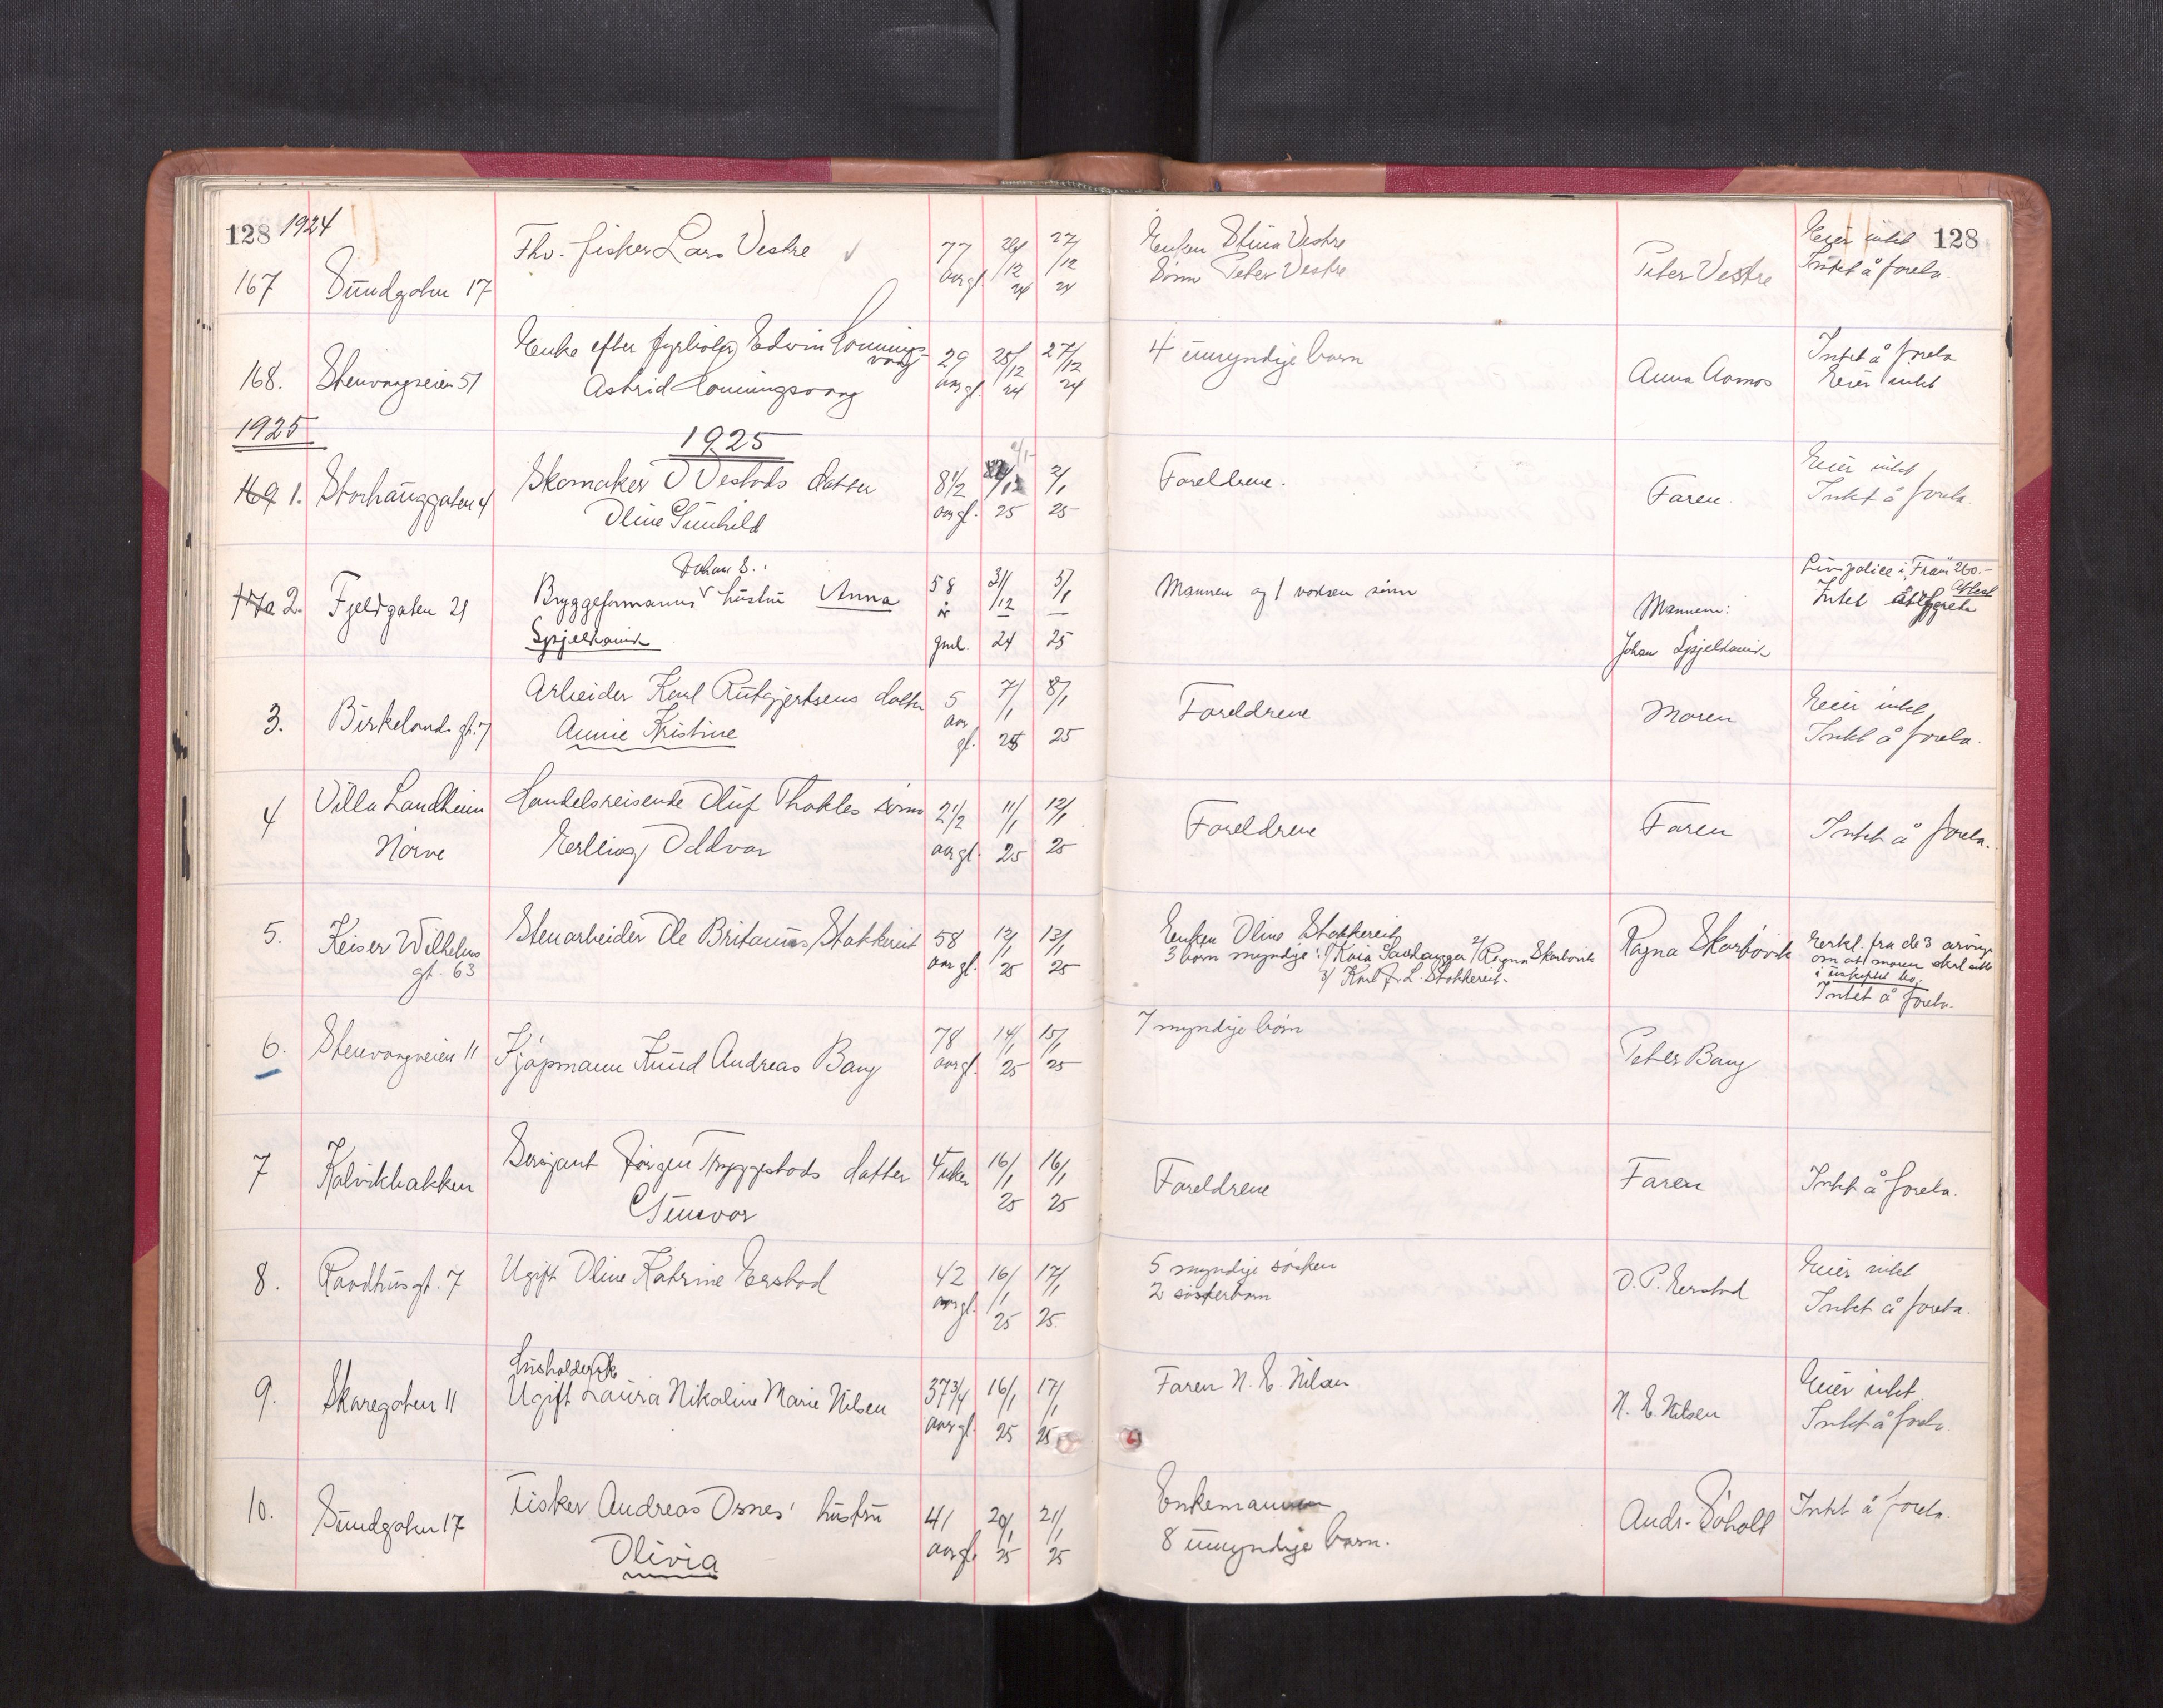 128 1924
167 Sundgaten 17 Fhv. fisker Lars Vestre 77 aar gl. 26/12 24 27/12 24
Enken Stina Vestre
Sønn Peter Vestre
Peter Vestre
Eier intet 128
Intet å foreta.
168. Stenvaagveien 51 Enke efter fyrbøter Edwin Honnings-
vaag
Astrid Honningsvaag
29 aar gl. 25/12 24 27/12 24
4 umyndige barn
Anna Aamos
Intet å foreta
Eier intet
1925
1925
169 1. Storhauggaten 4 Skomaker O Vestads datter
Oline Gunhild
8 1/2 aar gl. 25 2/1 25
Foreldrene.
Faren.
Eier intet
Intet å foreta.
170 2. Fjeldgaten 21 Johan S.
Bryggeformanns hustru Anna
Spjelkavik
58 år gml. 31/12 24 5/1 25
Mannen og 1 voksen sønn
Mannen:
Johan Spjelkavik
Livspolice i "Fram" 260.-
Attest
Intet
3. Birkelands gt. 7 Arbeider Karl Rutgjertsens datter
Annie Kristine
5 aar gl. 7/1 25 8/1 25
Foreldrene
Moren
Eier intet
Intet å foreta.
4 Villa Landheim
Nørve
Handelsreisende Oluf Thokles sønn
Erling Oddvar
2 1/2 aar gl. 11/1 25 12/1 25
Foreldrene
Faren
Intet å foreta.
5. Keiser Wilhelms
gt. 63
Stenarbeider Ole Britanus Stokkereit
58 aar gl. 12/1 25 13/1 25
Enken Oline Stokkereit
3 barn myndige: 1/ Kaia Savlanger 2/ Ragna Skarbøvik
3/ Karl J. L. Stokkereit.
Ragna Skarbøvik
Erkl. fra de 3 arvinge
om at moren skal sitte
i uskiftet bo.
Intet å foreta.
6. Stenvaagveien 11 Kjøpmann Knud Andreas Bang
78 aar gl. 14/1 25 15/1 25
7 myndige børn
Peter Bang
7 Kalvikbakken Sersjant Jørgen Tryggestads datter
Gunvor
4 uker 16/1 25 16/1 25
Foreldrene
Faren
Intet å foreta.
8. Raadhusgt. 7 Ugift Oline Katrine Erstad
42 aar gl. 16/1 25 17/1 25
5 myndige søsken
2 søsterbarn
O. P. Eerstad
Eier intet
Intet å foreta.
9. Skaregaten 11 Husholderske
Ugift Laura Nikoline Marie Nilsen
37 3/4 aar gl. 16/1 25 17/1 25
Faren N. E. Nilsen
N. E. Nilsen
Eier intet.
Intet å foreta
10. Sundgaten 17 Fisker Andreas Osnes' hustru
Olivia
41 aar gl. 20/1 25 21/1 25
Enkemannen
8 umyndige barn.
Andr. Søholt
Intet å foreta.